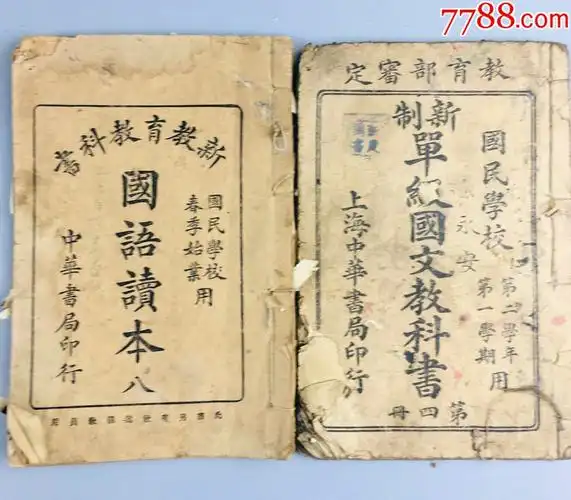 7788.com
新教育教科書
國民學校
春季始業
用
國語讀本 八
中華書局印行
教育部審定
國民學校
第二學年
第一學期
用
永安
新制
單級國文教科書
第四冊
上海中華書局印行